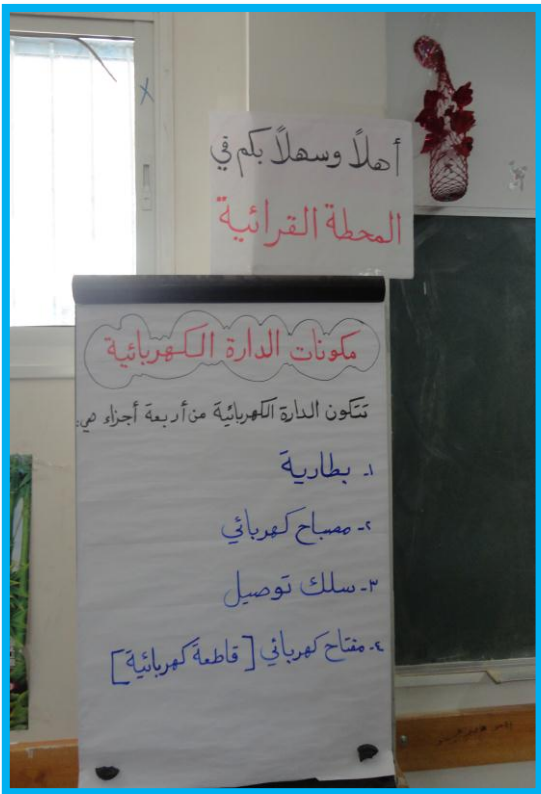 أهلًا وسهلًا بكم في
المحطة القرائية
مكونات الدارة الكهربائية
تتكون الدارة الكهربائية من أربعة أجزاء هي:
١- بطارية
٢- مصباح كهربائي
٣- سلك توصيل
٤- مفتاح كهربائي [قاطعة كهربائية]